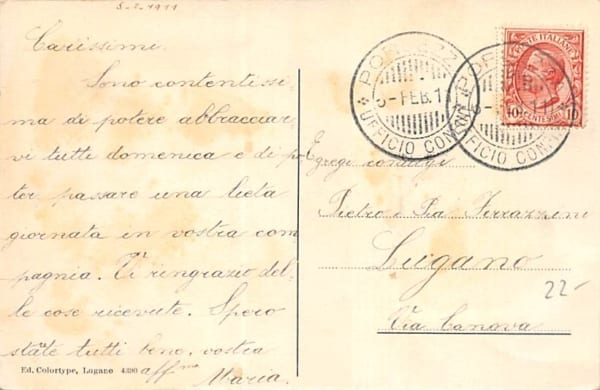 5-2-1911
Carissimi.
Sono contentissi
ma di potere abbracciar
vi tutti domenica e di po
ter passare una lieta
giornata in vostra com
pagnia. Vi ringrazio del-
le cose ricevute. Spero
state tutti bene, vostra
aff.ma
Maria.
Ed. Colortype, Lugano 4390
POSTE ITALIANE
10 CENTESIMI 10
5-FEB.1
UFFICIO CON
UFFICIO CON
Egregi coniugi
Pietro e Pia Ferrazzini
Lugano
Via Canova
22-